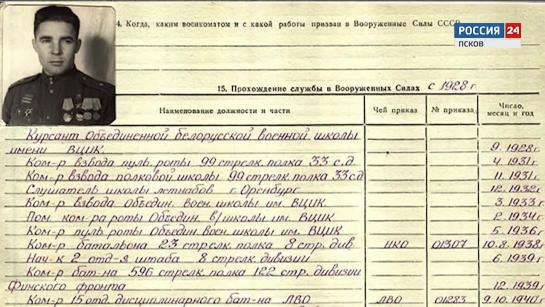 14. Когда, каким военкоматом и с какой работы призван в Вооруженные Силы СССР
РОССИЯ 24
ПСКОВ
15. Прохождение службы в Вооруженных Силах с 1928 г
Наименование должности и части
Чей приказ
№ приказа
Число, месяц и год
Курсант Объединенной белорусской военной школы
имени ВЦИК 9. 1928г.
Ком-р взвода пуль. роты 99 стрелк. полка 33 с.д. 4. 1931г.
Ком-р взвода полковой школы 99 стрелк. полка 33 сд 11. 1931г.
Слушатель школы летнабов г. Оренбург 12. 1932г.
Ком-р взвода Объедин. воен. школы им. ВЦИК 3. 1933г.
Пом. ком-ра роты Объедин. в/школы им. ВЦИК 2. 1934г.
Ком-р пуль. роты Объедин. воен. школы им. ВЦИК 5. 1936г.
Ком-р батальона 23 стрелк. полка 8 стр. див. НКО 01307 10.8.1938г
Нач-к 2 отд-я штаба 8 стрелк. дивизии 6. 1939г.
Ком-р бат-на 596 стрелк. полка 122 стр. дивизии
Финского фронта 12. 1939г
Ком-р 15 отд. дисциплинарного бат-на ЛВО ЛВО 01283 9.10.1940г